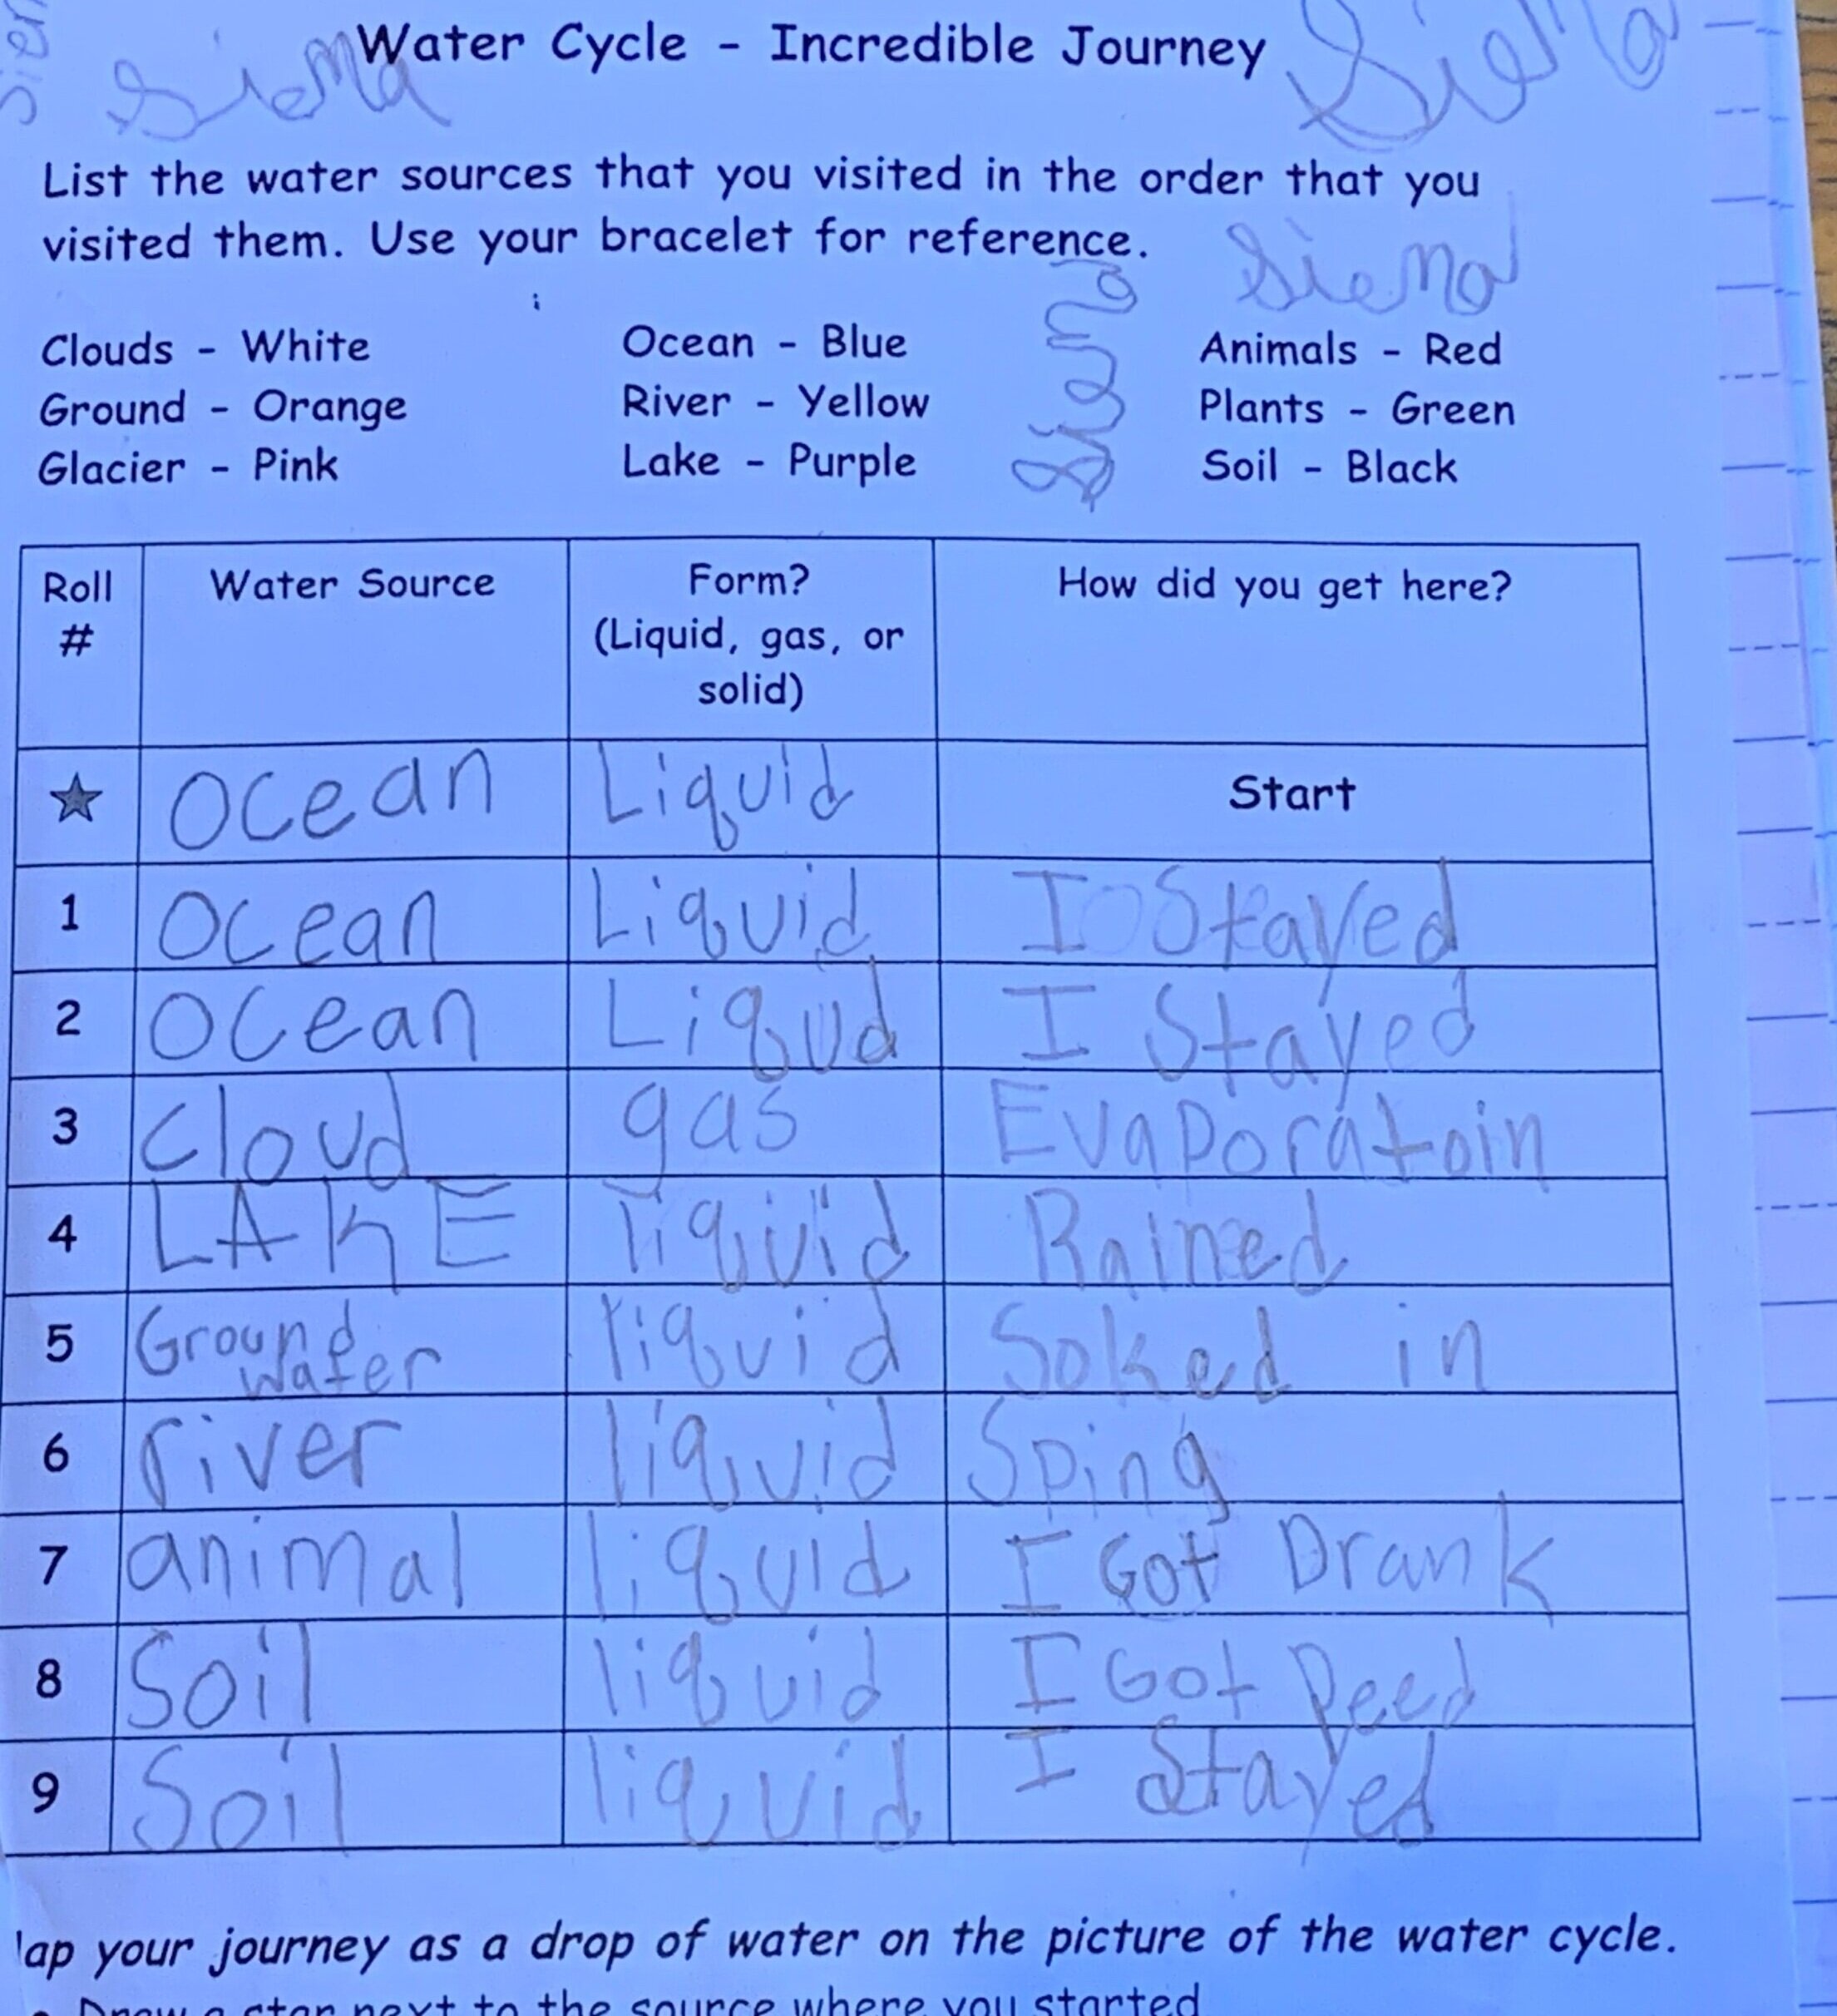 Siena
Siena
Water Cycle - Incredible Journey
Siena
List the water sources that you visited in the order that you
visited them. Use your bracelet for reference.
Siena
Siena
Clouds - White Ocean - Blue Animals - Red
Ground - Orange River - Yellow Plants - Green
Glacier - Pink Lake - Purple Soil - Black
Roll # Water Source Form? (Liquid, gas, or solid) How did you get here?
★ Ocean Liquid Start
1 Ocean Liquid I Stayed
2 Ocean Liqud I Stayed
3 Cloud gas Evaporatoin
4 LAKE liquid Rained
5 Ground water liquid Soked in
6 river liquid Sping
7 animal liquid I Got Drank
8 Soil liquid I Got Peed
9 Soil liquid I Stayed
ap your journey as a drop of water on the picture of the water cycle.
Draw a star next to the source where you started